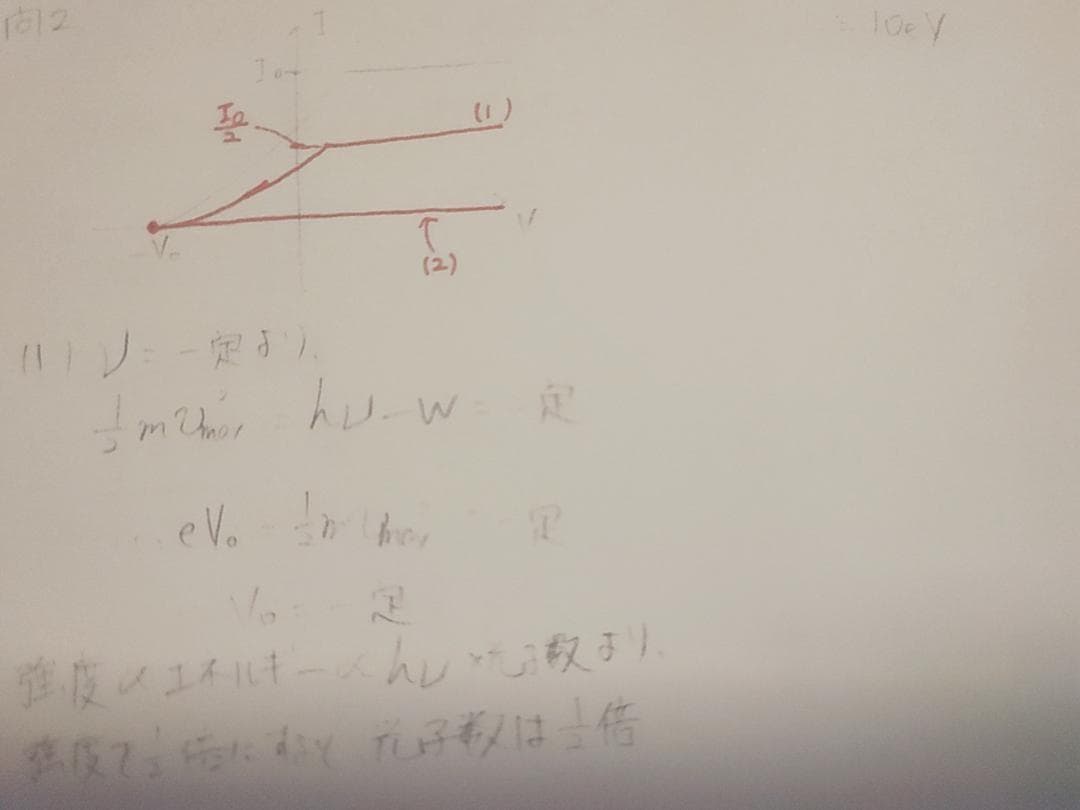 問2
10eV
I
I₀
I₀/2
(1)
-V₀
V
(2)
(1) ν = 一定より、
1/2 m v²max = hν - W = 一定
∴ eV₀ = 1/2 m v²max = 一定
V₀ = 一定
強度 ∝ エネルギー ∝ hν × 光子数より、
強度で1/2倍にすると 光子数は1/2倍